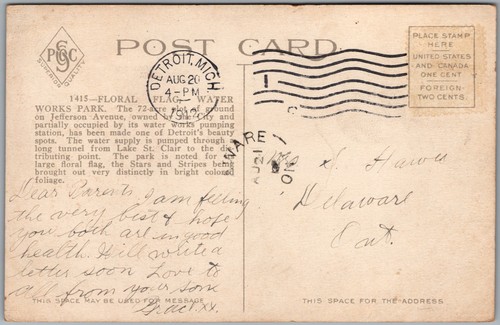 POST CARD
PLACE STAMP
HERE
UNITED STATES
AND CANADA
ONE CENT
FOREIGN-
TWO CENTS.
DETROIT, MICH
AUG 20
4-PM
1415—FLORAL FLAG, WATER
WORKS PARK. The 72-acre plot of ground
on Jefferson Avenue, owned by the city and
partially occupied by its water works pumping
station, has been made one of Detroit's beauty
spots. The water supply is pumped through a
long tunnel from Lake St. Clair to the dis-
tributing point. The park is noted for its
large floral flag, the Stars and Stripes being
brought out very distinctly in bright colored
foliage.
WARE
AU 21
ONT
Dear Parents, I am feeling
the very best & hope
you both are in good
health. Will write a
letter soon Love to
all from your son
S.
Delaware
Ont.
THIS SPACE MAY BE USED FOR MESSAGE
THIS SPACE FOR THE ADDRESS